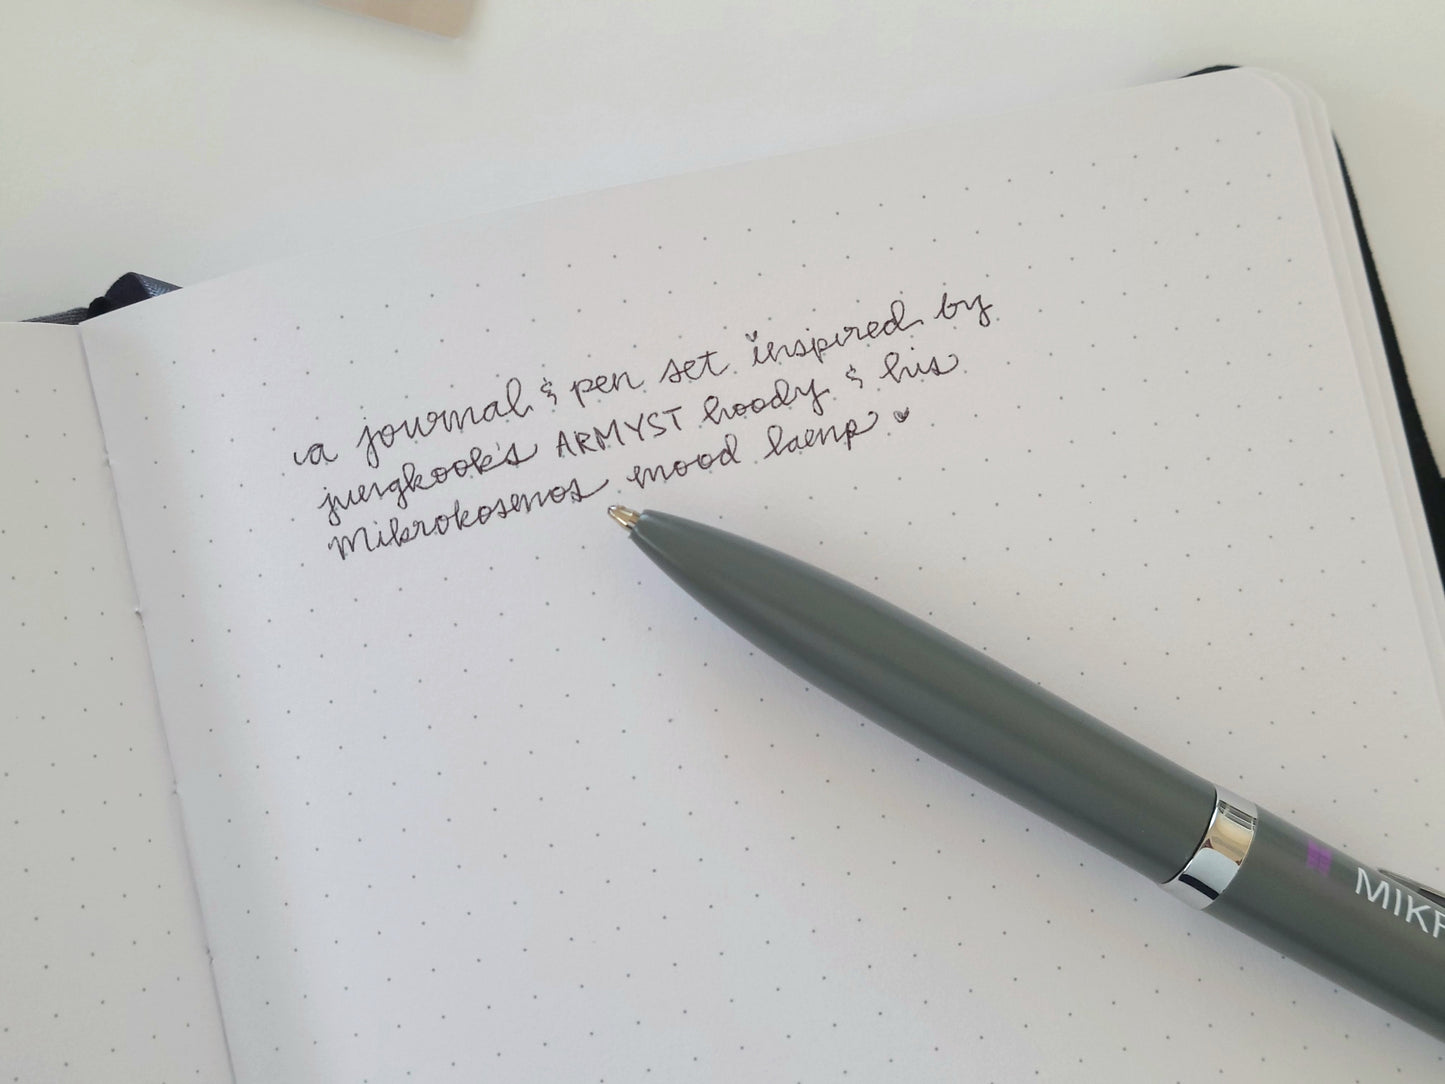 a journal & pen set inspired by
jungkook's ARMYST hoody & his
Mikrokosmos mood lamp ♥
MIKR